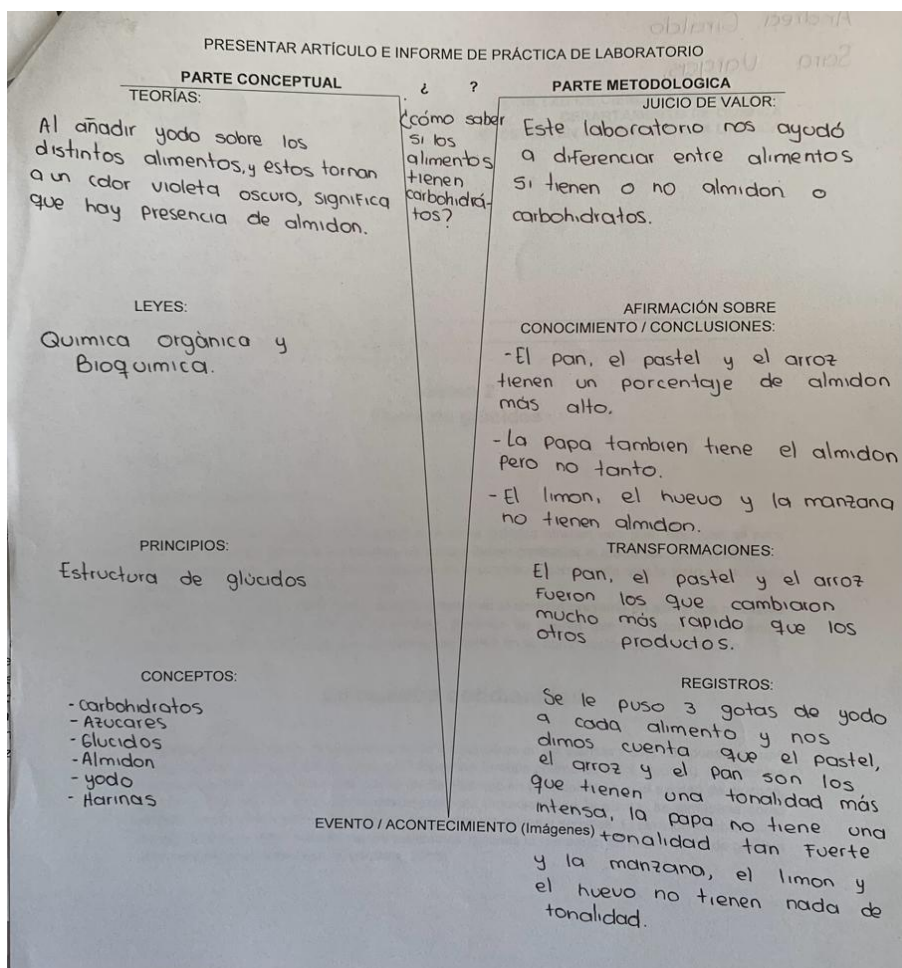 PRESENTAR ARTÍCULO E INFORME DE PRÁCTICA DE LABORATORIO
PARTE CONCEPTUAL
TEORÍAS:
Al añadir yodo sobre los
distintos alimentos, y estos tornan
a un color violeta oscuro, significa
que hay presencia de almidon.
LEYES:
Quimica orgànica y
Bioquimica.
PRINCIPIOS:
Estructura de glùcidos
CONCEPTOS:
- carbohidratos
- Azucares
- Glucidos
- Almidon
- yodo
- Harinas
¿ ?
¿cómo saber
si los
alimentos
tienen
carbohidrá-
tos?
PARTE METODOLOGICA
JUICIO DE VALOR:
Este laboratorio nos ayudó
a diferenciar entre alimentos
si tienen o no almidon o
carbohidratos.
AFIRMACIÓN SOBRE
CONOCIMIENTO / CONCLUSIONES:
- El pan, el pastel y el arroz
tienen un porcentaje de almidon
más alto.
- La papa tambien tiene el almidon
pero no tanto.
- El limon, el huevo y la manzana
no tienen almidon.
TRANSFORMACIONES:
El pan, el pastel y el arroz
fueron los que cambiaron
mucho más rapido que los
otros productos.
REGISTROS:
Se le puso 3 gotas de yodo
a cada alimento y nos
dimos cuenta que el pastel,
el arroz y el pan son los
que tienen una tonalidad más
intensa, la papa no tiene una
tonalidad tan fuerte
y la manzana, el limon y
el huevo no tienen nada de
tonalidad.
EVENTO / ACONTECIMIENTO (Imágenes)